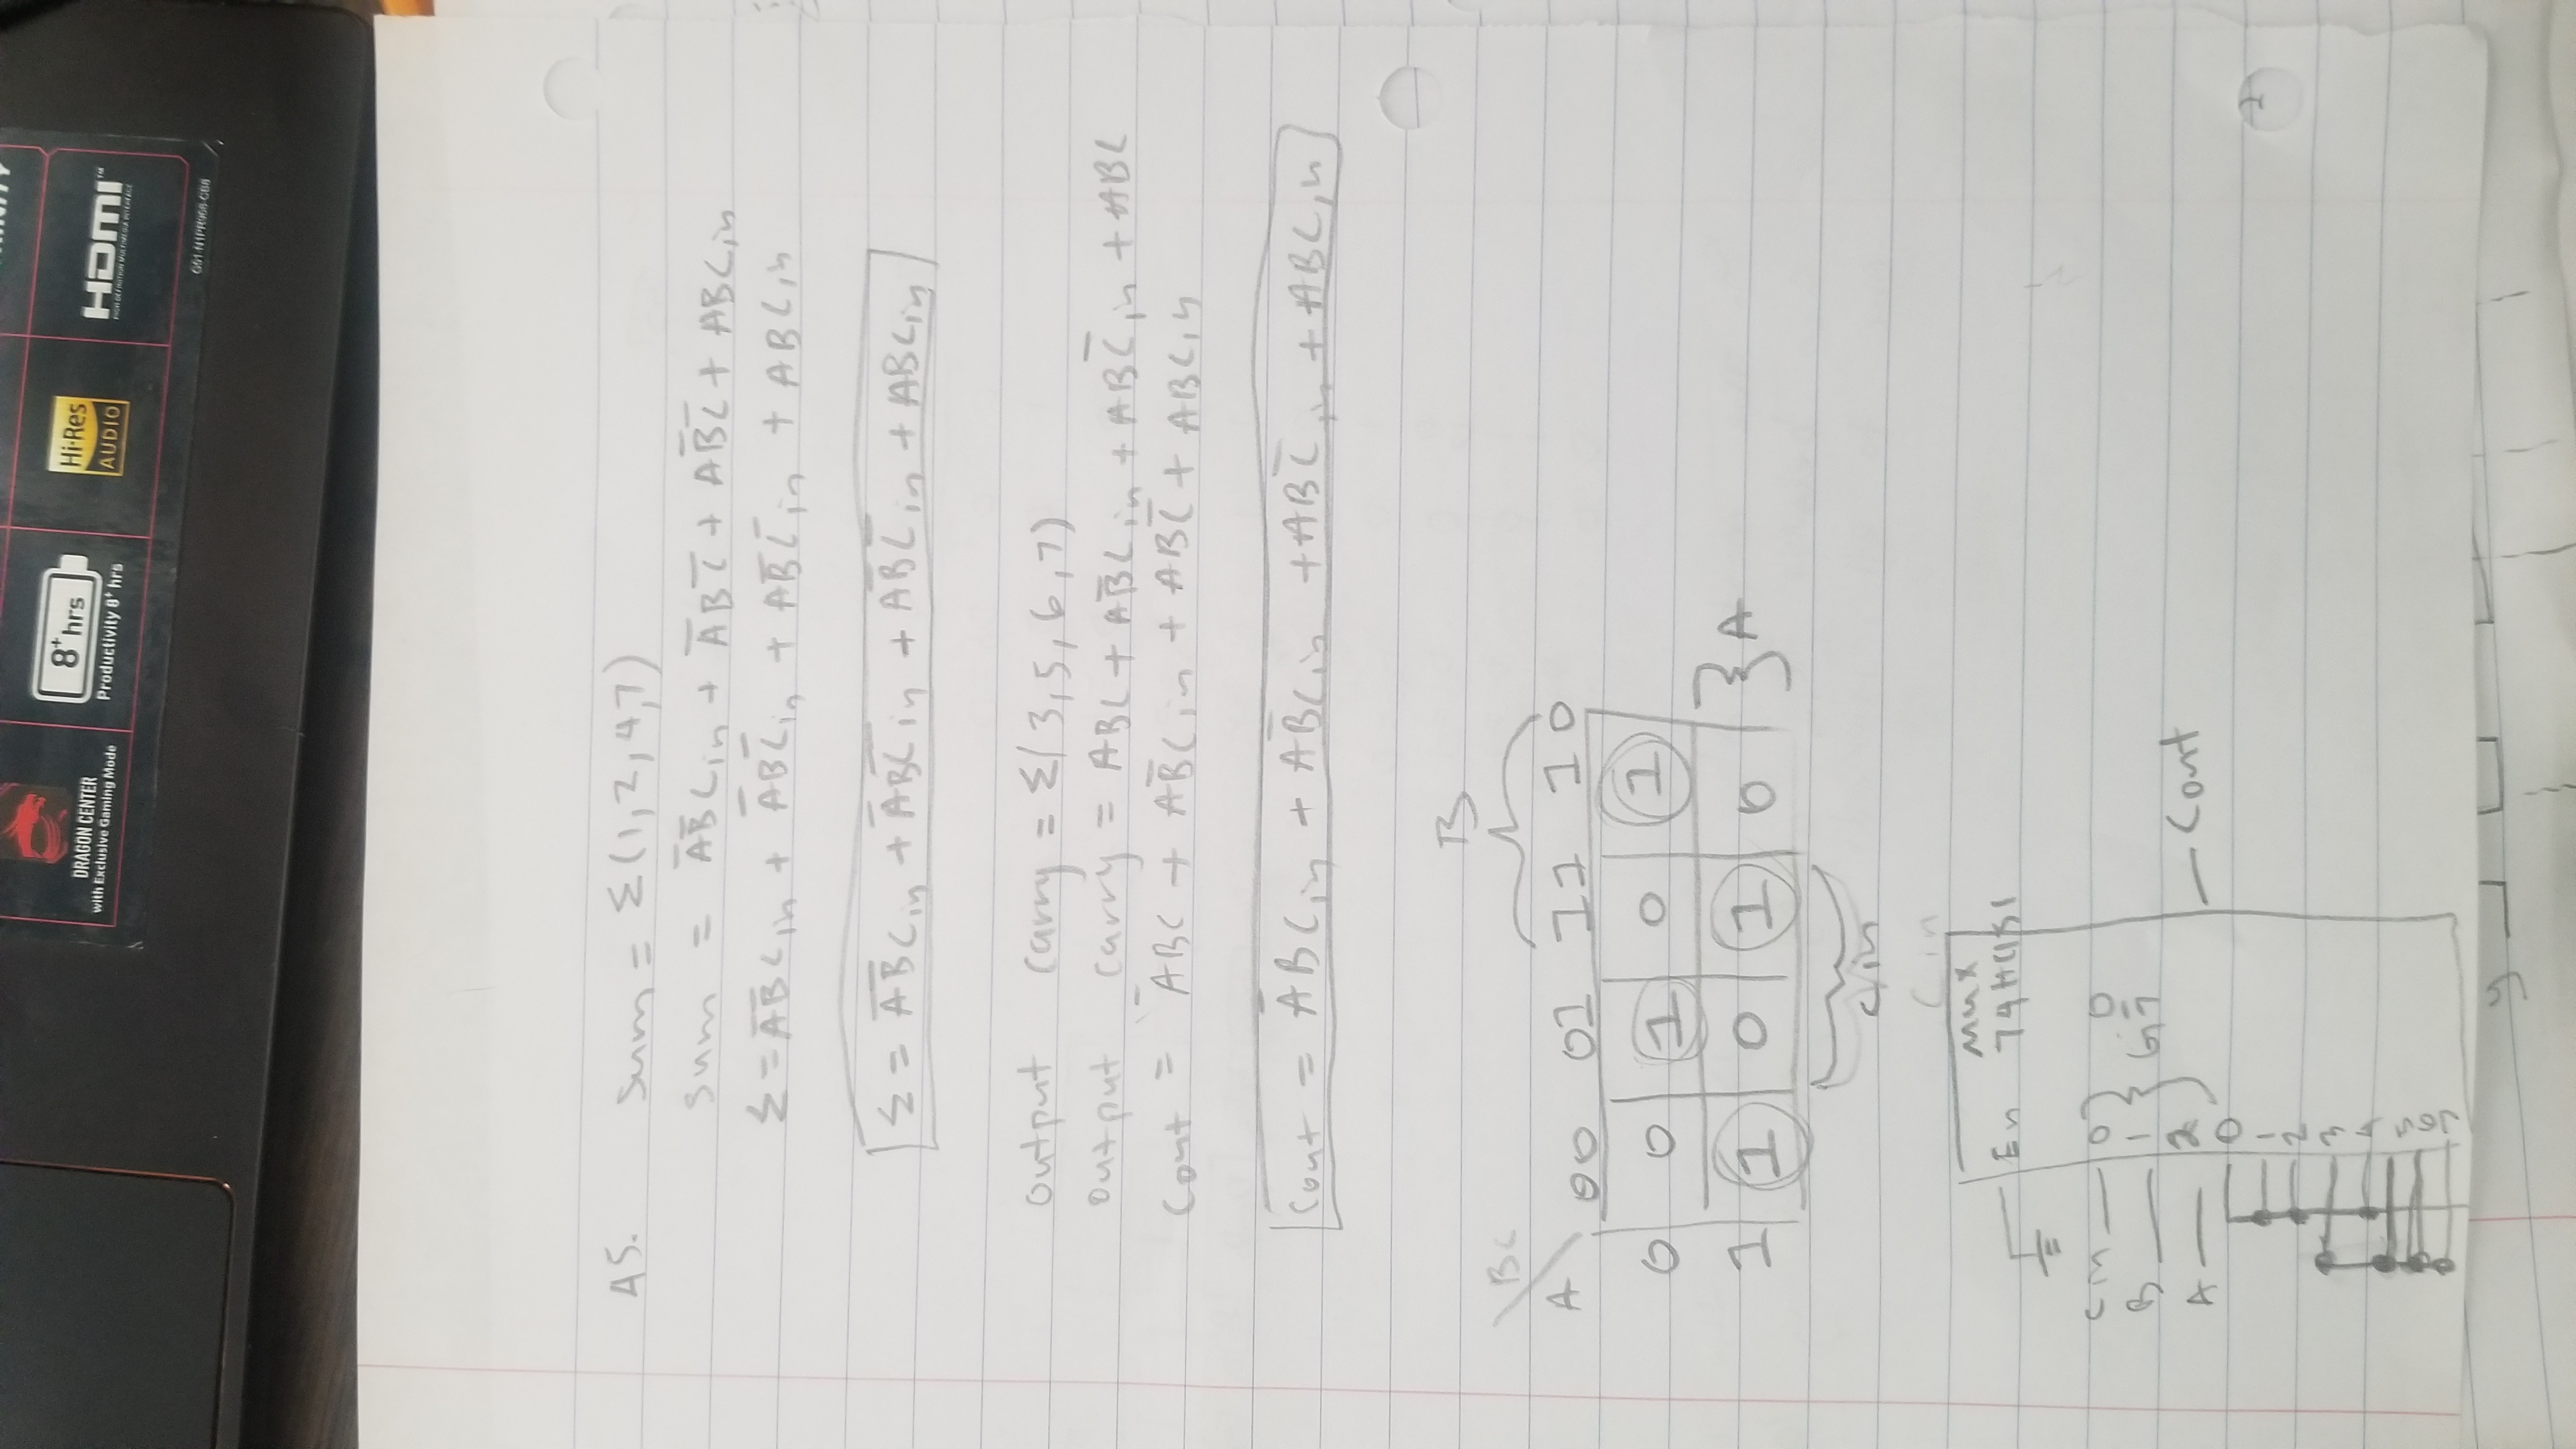 DRAGON CENTER
with Exclusive Gaming Mode
8+ hrs
Productivity 8+ hrs
Hi-Res
AUDIO
HDMI™
HIGH DEFINITION MULTIMEDIA INTERFACE
A5. Sum = Σ(1,2,4,7)
Sum = A̅B̅Cin + A̅BC̅ + AB̅C̅ + ABCin
Σ = A̅B̅Cin + A̅BC̅in + AB̅C̅in + ABCin
Σ = A̅B̅Cin + A̅BC̅in + AB̅C̅in + ABCin
output carry = Σ(3,5,6,7)
output carry = ABC + AB̅Cin + ABC̅in + ABC
Cout = A̅BC + AB̅Cin + ABC̅ + ABCin
Cout = A̅BCin + AB̅Cin + ABC̅in + ABCin
B
BC
A 00 01 11 10
0 0 1 0 1
1 1 0 1 0 } A
Cin
Cin
Mux
En 74HC151
Cin 0 0
B 1 G 7
A 2
Cout
0
1
2
3
4
5
6
7
2
y